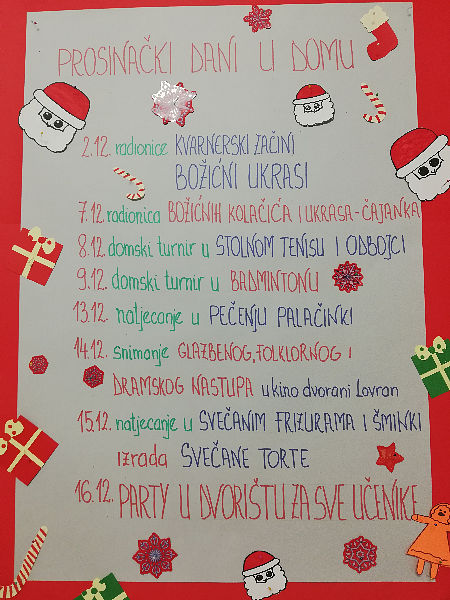 PROSINAČKI DANI U DOMU
2.12. radionice KVARNERSKI ZAČINI
BOŽIĆNI UKRASI
7.12. radionica BOŽIĆNIH KOLAČIĆA I UKRASA-ČAJANKA
8.12. domski turnir u STOLNOM TENISU I ODBOJCI
9.12. domski turnir u BADMINTONU
13.12. natjecanje u PEČENJU PALAČINKI
14.12. snimanje GLAZBENOG, FOLKLORNOG I
DRAMSKOG NASTUPA u kino dvorani Lovran
15.12. natjecanje u SVEČANIM FRIZURAMA I ŠMINKI
izrada SVEČANE TORTE
16.12. PARTY U DVORIŠTU ZA SVE UČENIKE